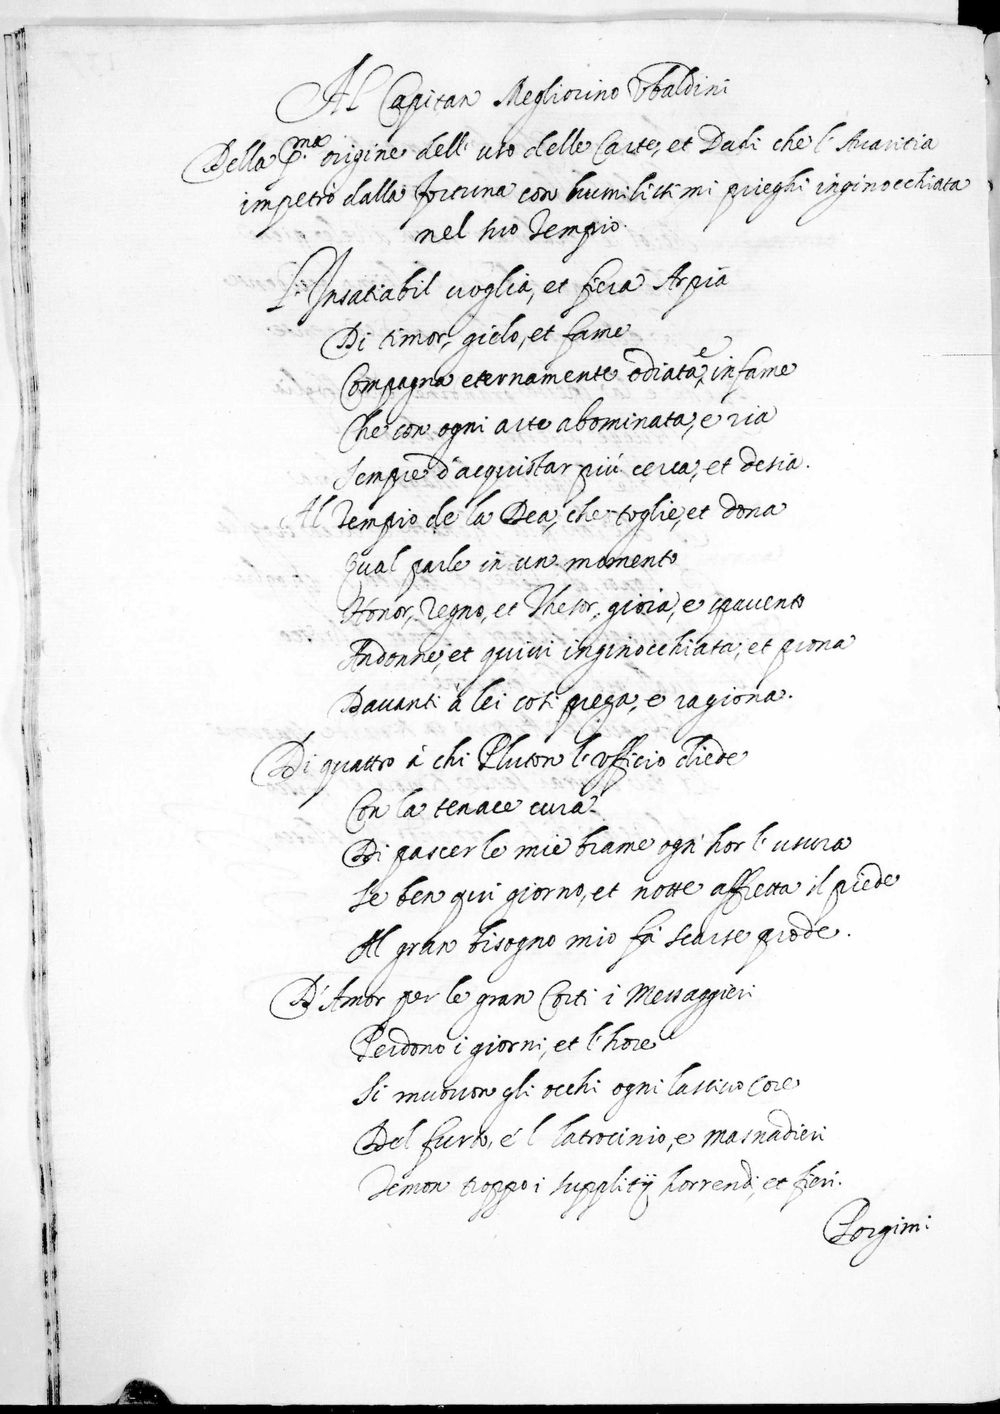 Al Capitan Megliorino Vbaldini
Della p.ma origine dell' uso delle Carte, et Dadi che l' Auaritia
impetrò dalla fortuna con humilissimi prieghi inginocchiata
nel suo Tempio.
L' Insatiabil voglia, et fiera Arpia
Di timor, gielo, et fame
Compagna eternamente odiata, e infame
Che con ogni arte abominata, e ria
Sempre d'acquistar più cerca, et desia.
Al Tempio de la Dea, che toglie, et dona
Qual parle in un momento
Honor, Regno, et Thesor, gioia, e spauento
Andonne, et quiui inginocchiata, et prona
Dauanti à lei così prega, e ragiona.
Di quattro à chi Pluton l' vfficio diede
Con la tenace cura
Di pascer le mie brame ogn' hor l' usura
Se ben qui giorno, et notte affretta il piede
Al gran bisogno mio fà scarse prede.
D' Amor per le gran Corti i Messaggieri
Perdono i giorni, et l' hore
Si muouon gli occhi ogni lasciuo Core
Del furto, e 'l latrocinio, e masnadieri
Temon troppo i supplitij horrendi, et fieri.
Porgimi